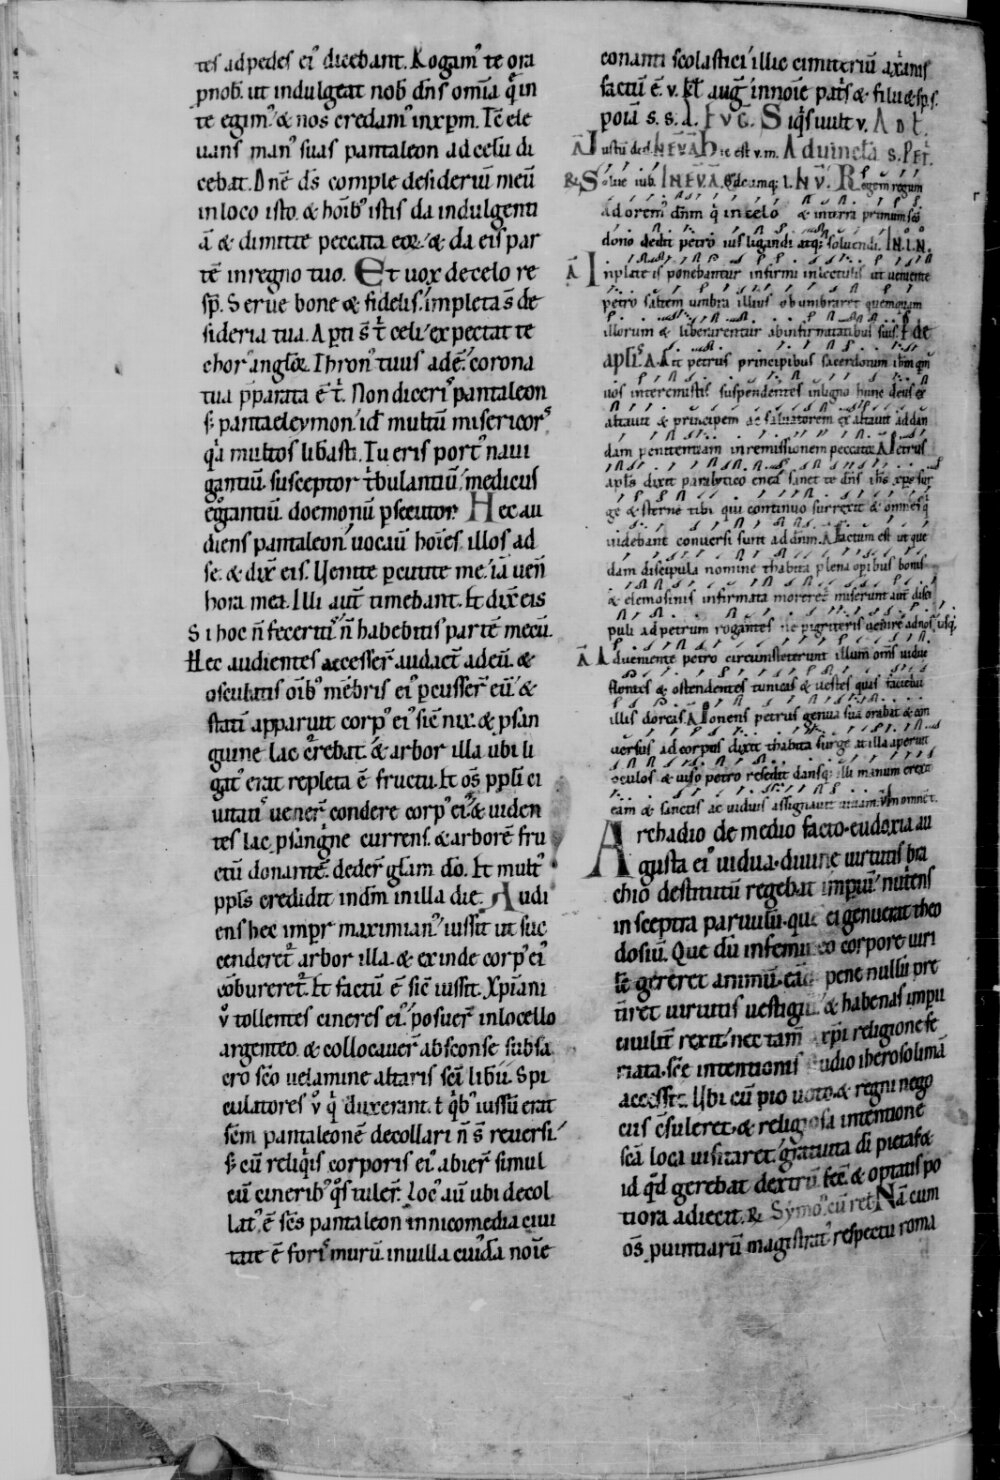 tes ad pedes ei᾿ dicebant. Rogam᾿ te ora
ꝓ nob̄. ut indulgeat nob̄ dn̄s om̄ia q̄ in
te egim᾿ & nos credam᾿ in xp̄m. Tc̄ ele
uans man᾿ suas pantaleon ad celū di
cebat. Dn̄e ds̄ comple desideriū meū
in loco isto. & hoīb᾿ istis da indulgenti
ā & dimitte peccata eoꝝ. & da eis par
tē in regno tuo. Et uox de celo re
sp̄. Serue bone & fidelis. impleta s̄ de
sideria tua. Apti s̄ t̄ celi. expectat te
chor᾿ angl̄oꝝ. Thron᾿ tuus adē. corona
tua p̄parata ē t̄. Non diceris pantaleon
s̄. pantaleymon. id᾿ multū misericors
q̄a multos lib̄asti. Tu eris port᾿ naui
gantiū. susceptor t̄bulantiū. medicus
egrotantiū. doemonū ꝑsecutor. Hec au
diens pantaleon uocauit hoīes illos ad
se. & dix̄ eis. Uenite ꝑcutite me. iā uen̄
hora mea. Illi aut̄ timebant. Et dix̄ eis
Si hoc n̄ feceritis n̄ habebitis partē mecū.
Hec audientes accesser̄ audact̄ ad eū. &
osculatis oīb᾿ mēbris ei᾿ ꝑcusser̄ eū. &
statī apparuit corp᾿ ei᾿ sic̄ nix. & ꝓ san
guine lac currebat. & arbor illa ubi li
gat᾿ erat repleta ē fructu. Et om̄s ppl̄i ci
uitatis uener̄ condere corp᾿ ei᾿ & uiden
tes lac ꝓ sanguine currens. & arborē fru
ctū donantē. deder̄ gl̄am dō. Et mult᾿
ppl̄s credidit in dn̄m in illa die. Audi
ens hec imp̄r maximian᾿ iussit ut suc
cenderet᾿ arbor illa. & exinde corp᾿ ei᾿
cōbureret᾿. Et factū ē sic̄ iussit. Xp̄iani
v̄ tollentes cineres ei᾿. posuer̄ in locello
argenteo. & collocauer̄ absconse sub sa
cro scō uelamine altaris scm̄ libriū. Spi
culatores v̄ q̄ duxerant. t̄ q̄b᾿ iussū erat
scm̄ pantaleonē decollari n̄ s̄ reuersi.
s̄. cū reliq̄is corporis ei᾿ abier̄ simul
cū cinerib᾿ q̄s tuler̄. Loc᾿ aū ubi decol
lat᾿ ē scs̄ pantaleon in nicomedia ciui
tate ē foris murū in uilla cuiusdā noīe
conanti scolastici illuc cimiteriū axanis
factū ē. v. kl̄ aug. in noīe patris & filii & sp̄s.
potū s. s. A. EVG. Siq̄s uult v. AD L.
Justū ded. IN EVA. Hic est v. m. Ad uincla s. Pet.
& Solue iub. IN EVA. Quodcūq; l. IN V. Regem regum
adorem᾿ dn̄m q̄ in celo & in terra primum scō
dono dedit petro ius ligandi atq; soluendi. IN. I. N.
A In plateis ponebantur infirmi in lectulis ut ueniente
petro saltem umbra illius obumbraret quemquam
illorum & liberarentur ab infirmitatibus suis. & de
apl̄is. A. Ait petrus principibus sacerdotum ih̄m quē
uos interemistis suspendentes in ligno hunc deus ex
altauit & principem ac saluatorem exaltauit ad dan
dam penitentiam in remissionem peccatoꝝ. A Petrus
apl̄s dixit paralytico enea sanet te dn̄s ih̄s xp̄s sur
ge & sterne tibi qui continuo surrexit & omnes q̄
uidebant conuersi sunt ad dn̄m. A Factum est ut que
dam discipula nomine thabita plena opibus bonis
& elemosinis infirmata moreret᾿ miserunt aut̄ disci
puli ad petrum rogantes ne pigriteris uenire ad nos usq;
A Adueniente petro circumsteterunt illum om̄s uidue
flentes & ostendentes tunicas & uestes quas faciebat
illis dorcas. A Ponens petrus genua sua orabat & con
uersus ad corpus dixit thabita surge at illa aperuit
oculos & uiso petro resedit dansq; illi manum erexit
eam & sanctis ac uiduis assignauit uiuam.
Archadio de medio facto. eudoxia au
gusta ei᾿ uidua. diuine uirtutis bra
chio destitutū regebat imperiū. nutriens
in sceptra paruulū. que ei genuerat theo
dosiū. Que dū in femineo corpore uiri
lē gereret animū. eāq; pene nullū pre
tiret uirtutis uestigiū. & habenas imperii
ciuilit̄ rexit. nec tam xp̄i religione fe
riata. scē intentionis studio iherosolimā
accessit. Ubi cū pio uoto. & regni nego
ciis c̄suleret. & religiosa intentione
scā loca uisitaret. gratuita di pietas &
id q̄d gerebat dextrū fec̄. & optatis po
tiora adiecit. & Symo᾿ cū ret. Nā cum
om̄s ꝓuintiarū magistrat᾿ respectu roma